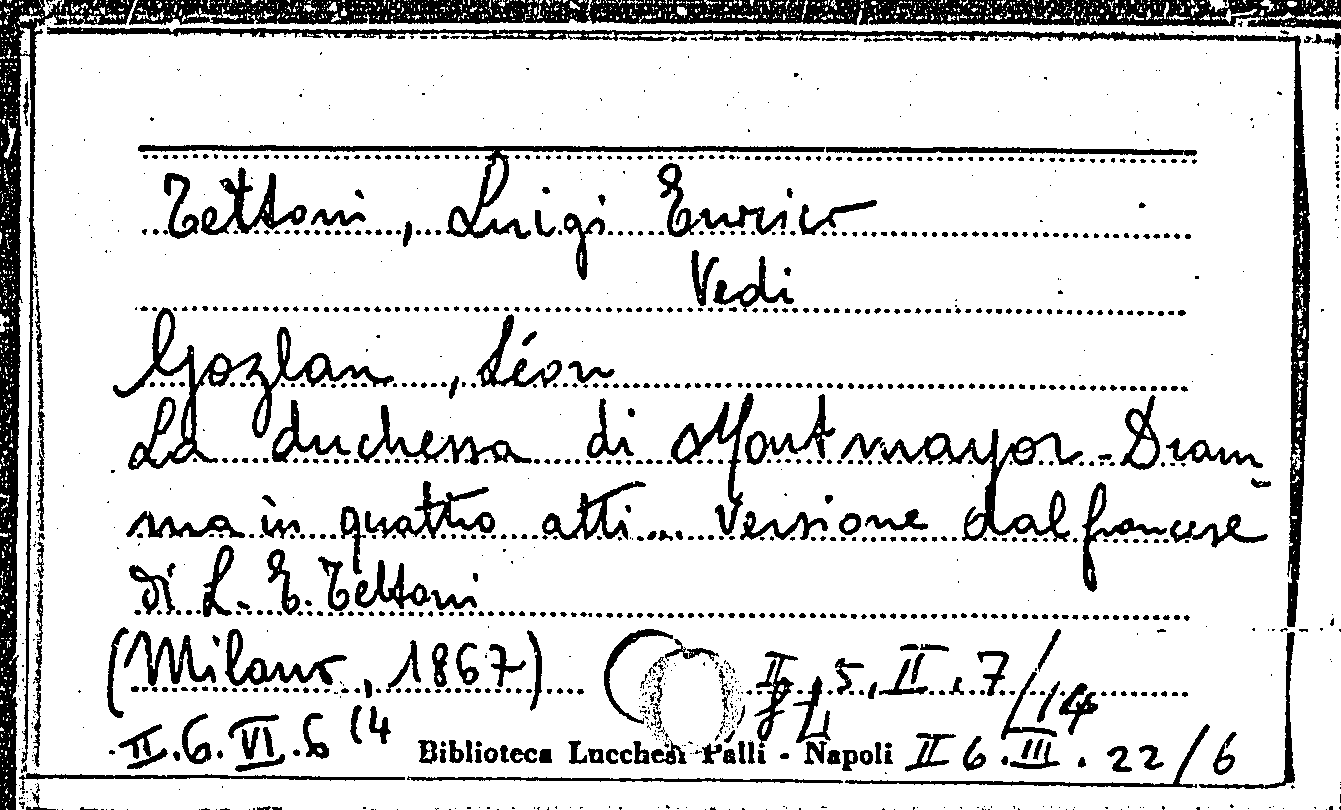 Tettoni, Luigi Enrico
Vedi
Gozlan, Léon
La duchessa di Montmayor - Dram-
ma in quattro atti... Versione dal francese
di L. E. Tettoni
(Milano, 1867) II, 5. II. 7/14
II. 6. VI. 6 (4 Biblioteca Lucchesi Palli - Napoli II 6. III. 22/6